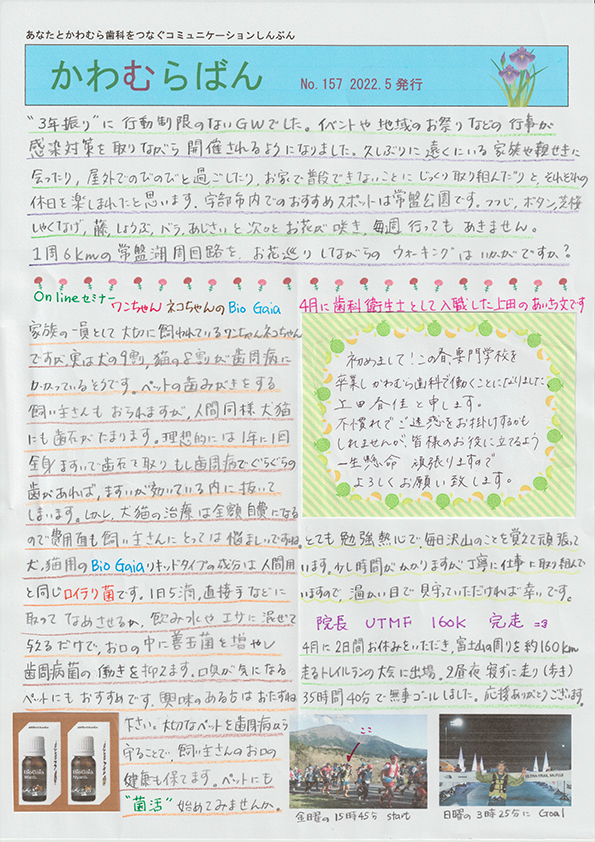 あなたとかわむら歯科をつなぐコミュニケーションしんぶん
かわむらばん
No.157 2022.5発行
"3年振り"に行動制限のないGWでした。イベントや地域のお祭りなどの行事が
感染対策を取りながら開催されるようになりました。久しぶりに遠くにいる家族や親せきに
会ったり、屋外でのびのびと過ごしたり、お家で普段できないことにじっくり取り組んだりと、それぞれの
休日を楽しまれたと思います。宇部市内でのおすすめスポットは常盤公園です。つつじ、ボタン、芝桜
しゃくなげ、藤、しょうぶ、バラ、あじさいと次々とお花が咲き、毎週行ってもあきません。
1周6kmの常盤湖周回路を、お花巡りしながらのウォーキングはいかがですか?
Onlineセミナー
ワンちゃんネコちゃんのBio Gaia
家族の一員として大切に飼われているワンちゃんネコちゃん
ですが、実は犬の9割、猫の8割が歯周病に
かかっているそうです。ペットの歯みがきをする
飼い主さんもおられますが、人間同様犬猫
にも歯石がたまります。理想的には1年に1回
全身ますいで歯石を取りもし歯周病でぐらぐらの
歯があれば、ますいが効いている内に抜いて
しまいます。しかし、犬猫の治療は全額自費になる
ので費用面も飼い主さんにとっては悩ましいですね。
犬、猫用のBio Gaiaリキッドタイプの成分は人間用
と同じロイテリ菌です。1日5滴、直接手などに
取ってなめさせるか、飲み水やエサに混ぜて
与えるだけで、お口の中に善玉菌を増やし
歯周病菌の働きを抑えます。口臭が気になる
ペットにもおすすめです。興味のある方はおたずね
下さい。大切なペットを歯周病から
守ることで、飼い主さんのお口の
健康も保てます。ペットにも
"菌活"始めてみませんか。
4月に歯科衛生士として入職した上田のあいさつ文です
初めまして!この春、専門学校を
卒業しかわむら歯科で働くことになりました
上田合佳と申します。
不慣れでご迷惑をお掛けするかも
しれませんが、皆様のお役に立てるよう
一生懸命頑張りますので
よろしくお願い致します。
とても勉強熱心で、毎日沢山のことを覚えて頑張って
います。少し時間がかかりますが丁寧に仕事に取り組んで
いますので、温かい目で見守っていただければ幸いです。
院長 UTMF 160K 完走
4月に2日間お休みをいただき、富士山の周りを約160km
走るトレイルランの大会に出場。2昼夜寝ずに走り(歩き)
35時間40分で無事ゴールしました。応援ありがとうございます。
ここ
金曜の15時45分 start
日曜の3時25分にGoal
BioGaia
BioGaia